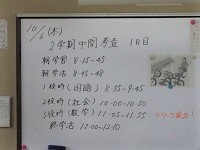 10/6(木)
2学期中間考査 1日目
朝学習 8:25-45
朝学活 8:45-48
1校時(国語) 8:55-9:45
2校時(社会) 10:00-10:50
3校時(数学) 11:05-11:55
終学活 12:00-12:10